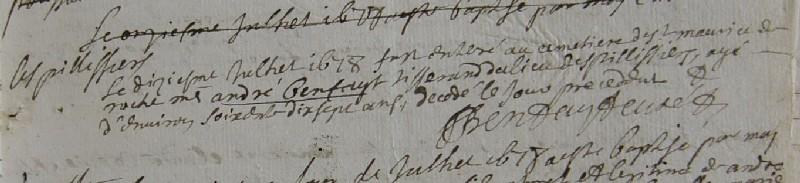 Le onziesme Julhet 1678 a este baptise par moy
Les pillissiers
Le diziesme Julhet 1678 fust enteré au cimetiere de st maurice de
roche me andré Benfayt tisserand du lieu des pillissiers, agé
d'environ soixante dix sept ans, decedé le jour precedent
Julhet 1678 a este baptise par moy
legitime de andre